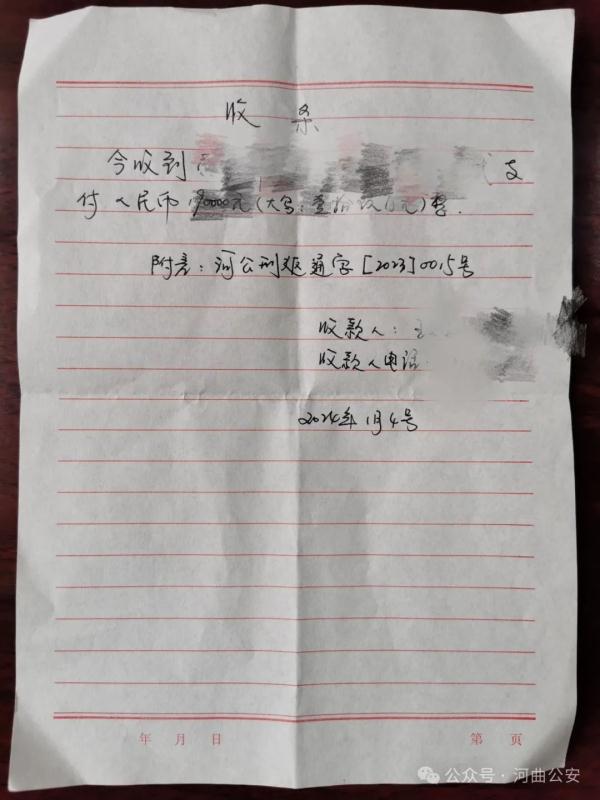 收 条
今收到 支
付人民币 0000元(大写:壹拾 万元)整.
附意:河公刑 通字[2023]0015号
收款人:
收款人电话
2024年1月4号
年 月 日 第 页
公众号·河曲公安